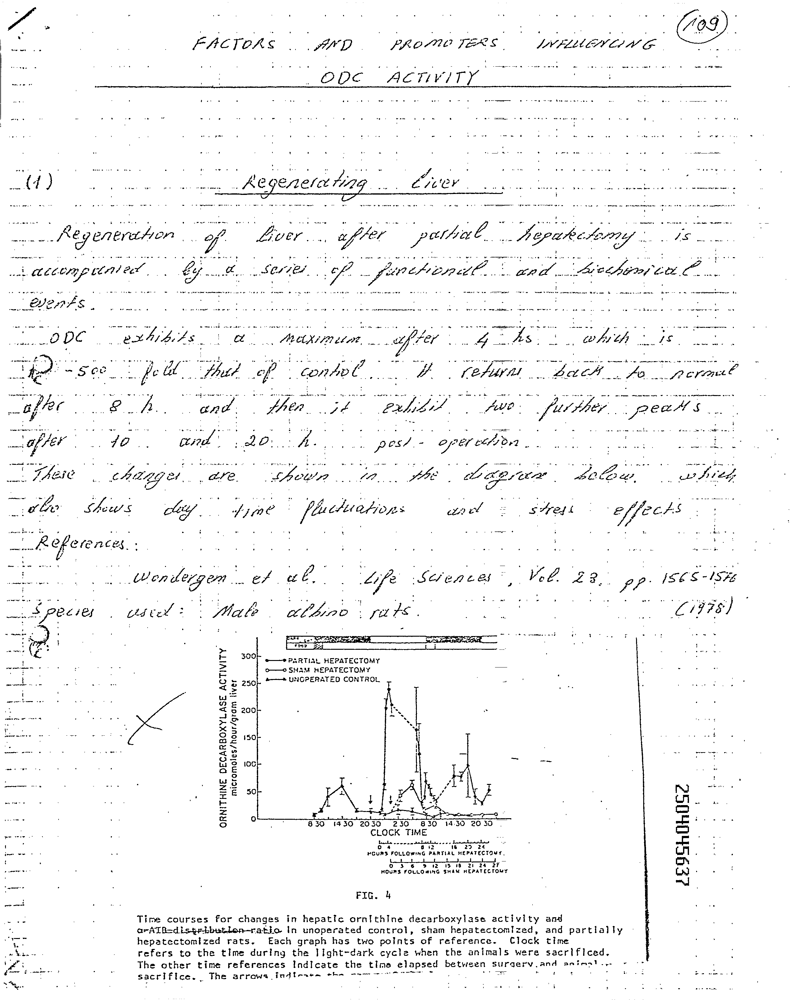 109
FACTORS AND PROMOTERS INFLUENCING
ODC ACTIVITY
(1) Regenerating Liver
Regeneration of Liver after partial hepatectomy is
accompanied by a series of functional and biochemical
events.
ODC exhibits a maximum after 4 hs which is
-500 fold that of control. It returns back to normal
after 8 h. and then it exhibit two further peaks
after 10 and 20 h. post-operation.
These changes are shown in the diagram below, which
also shows day time fluctuations and stress effects
References:
Wondergem et al. Life Sciences, Vol. 23, pp. 1565-1576
Species used: Male albino rats. (1978)
PARTIAL HEPATECTOMY
SHAM HEPATECTOMY
UNOPERATED CONTROL
ORNITHINE DECARBOXYLASE ACTIVITY
micromoles/hour/gram liver
300
250
200
150
100
50
0
8 30 14 30 20 30 2 30 8 30 14 30 20 30
CLOCK TIME
0 4 8 12 16 20 24
HOURS FOLLOWING PARTIAL HEPATECTOMY
0 3 6 9 12 15 18 21 24 27
HOURS FOLLOWING SHAM HEPATECTOMY
2504045637
FIG. 4
Time courses for changes in hepatic ornithine decarboxylase activity and
α-AIB distribution ratio in unoperated control, sham hepatectomized, and partially
hepatectomized rats. Each graph has two points of reference. Clock time
refers to the time during the light-dark cycle when the animals were sacrificed.
The other time references indicate the time elapsed between surgery and animal
sacrifice. The arrows indicate the